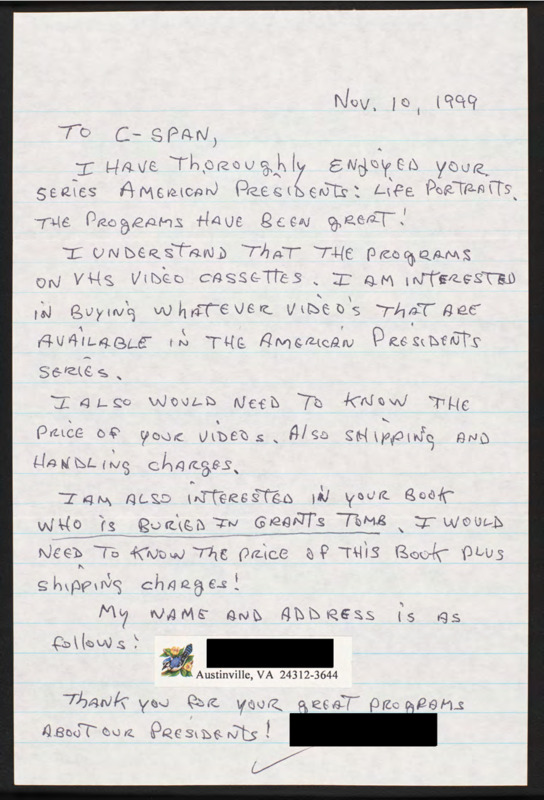 Nov. 10, 1999
TO C-SPAN,
I HAVE THOROUGHLY ENJOYED YOUR
SERIES AMERICAN PRESIDENTS: LIFE PORTRAITS.
THE PROGRAMS HAVE BEEN GREAT!
I UNDERSTAND THAT THE PROGRAMS
ON VHS VIDEO CASSETTES. I AM INTERESTED
IN BUYING WHATEVER VIDEO'S THAT ARE
AVAILABLE IN THE AMERICAN PRESIDENTS
SERIES.
I ALSO WOULD NEED TO KNOW THE
PRICE OF YOUR VIDEOS. Also SHIPPING AND
HANDLING CHARGES.
I AM ALSO INTERESTED IN YOUR BOOK
WHO is BURIED IN GRANT'S TOMB. I WOULD
NEED TO KNOW THE PRICE OF THIS BOOK PLUS
SHIPPING CHARGES!
My NAME AND ADDRESS is AS
follows:
Austinville, VA 24312-3644
THANK YOU FOR YOUR GREAT PROGRAMS
ABOUT OUR PRESIDENTS!